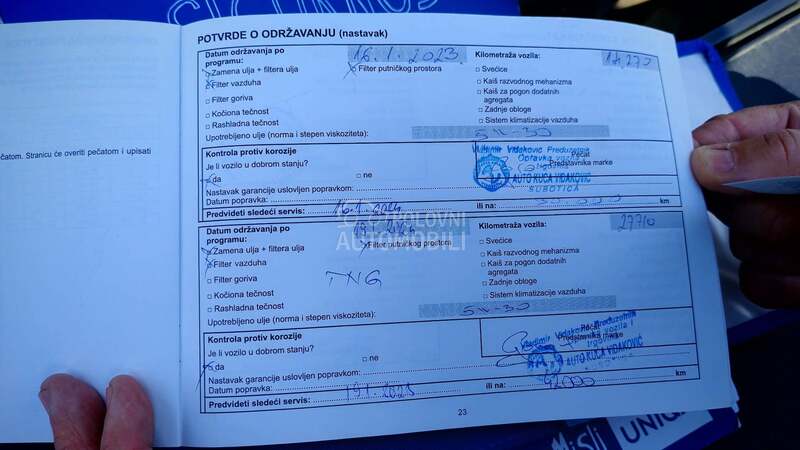 POTVRDE O ODRŽAVANJU (nastavak)
Datum održavanja po
programu:
16.1.2023
Kilometraža vozila:
Zamena ulja + filtera ulja
Filter putničkog prostora
Filter vazduha
Filter goriva
Kočiona tečnost
Rashladna tečnost
Svećice
Kaiš razvodnog mehanizma
Kaiš za pogon dodatnih
agregata
Zadnje obloge
Sistem klimatizacije vazduha
Upotrebljeno ulje (norma i stepen viskoziteta):
5W-30
Kontrola protiv korozije
Je li vozilo u dobrom stanju?
da
ne
Nastavak garancije uslovljen popravkom:
Datum popravka:
Pečat
Predstavnika marke
Vladimir Vidaković Preduzetnik
AUTO KUĆA VIDAKOVIĆ
SUBOTICA
km
Predvideti sledeći servis:
16.1.2024
ili na:
POLOVNI
AUTOMOBILI
Datum održavanja po
programu:
Kilometraža vozila:
27710
Zamena ulja + filtera ulja
Filter putničkog prostora
Filter vazduha
Filter goriva
TNG
Kočiona tečnost
Rashladna tečnost
Svećice
Kaiš razvodnog mehanizma
Kaiš za pogon dodatnih
agregata
Zadnje obloge
Sistem klimatizacije vazduha
Upotrebljeno ulje (norma i stepen viskoziteta):
5W-30
Kontrola protiv korozije
Je li vozilo u dobrom stanju?
da
ne
Nastavak garancije uslovljen popravkom:
Datum popravka:
Pečat
Predstavnika marke
AUTO KUĆA VIDAKOVIĆ
km
Predvideti sledeći servis:
19.1.2025
ili na:
42000
23
pečatom. Stranicu će overiti pečatom i upisati
UNIQA